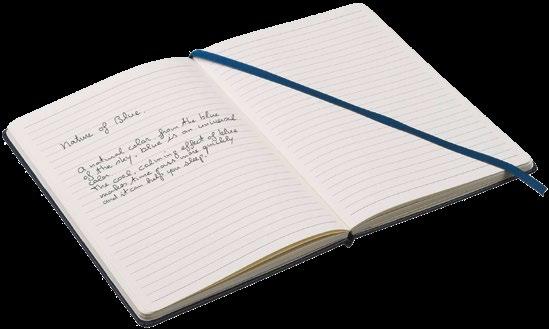 Nature of Blue.
A natural color, from the blue
of the sky, blue is an universal
color.
The cool, calming effect of blue
makes time pass more quickly
and it can help you sleep.